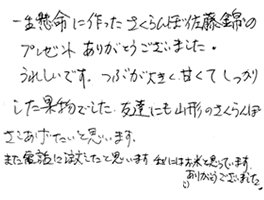 一生懸命に作ったさくらんぼ(佐藤錦)の
プレゼントありがとうございました。
うれしいです。つぶが大きく、甘くてしっかり
した果物でした。友達にも山形のさくらんぼ
さしあげたいと思います。
また電話に注文したと思います 私にはお米と思っています
ありがとうございました。